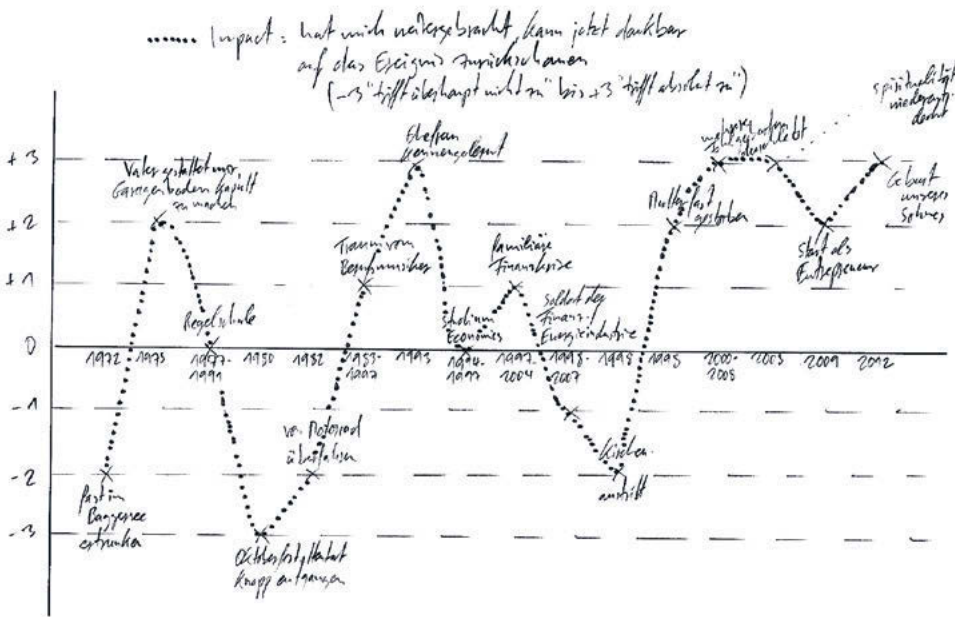 Impact = hat mich weitergebracht, kann jetzt dankbar
auf das Ereignis zurückschauen
(-3 "trifft überhaupt nicht zu" bis +3 "trifft absolut zu")
+3
+2
+1
0
-1
-2
-3
Fast im
Baggersee
ertrunken
Vater gestattet mir
Garagenboden kaputt
zu machen
Regelschule
Oktoberfestattentat
knapp entgangen
von Motorrad
überfahren
Traum vom
Berufsmusiker
Ehefrau
kennengelernt
Studium
Economics
Familiäre
Finanzkrise
Soldat der
Finanz-/
Energieindustrie
Kirchen-
austritt
Mutter fast
gestorben
mehrere
durchlebt
Spiritualität
wiederent-
deckt
Start als
Entrepreneur
Geburt
unseres
Sohnes
1972
1975
1977-
1991
1980
1982
1983-
1997
1993
1994-
1999
1997-
2004
1998-
2007
1998
1995
2000-
2008
2009
2012